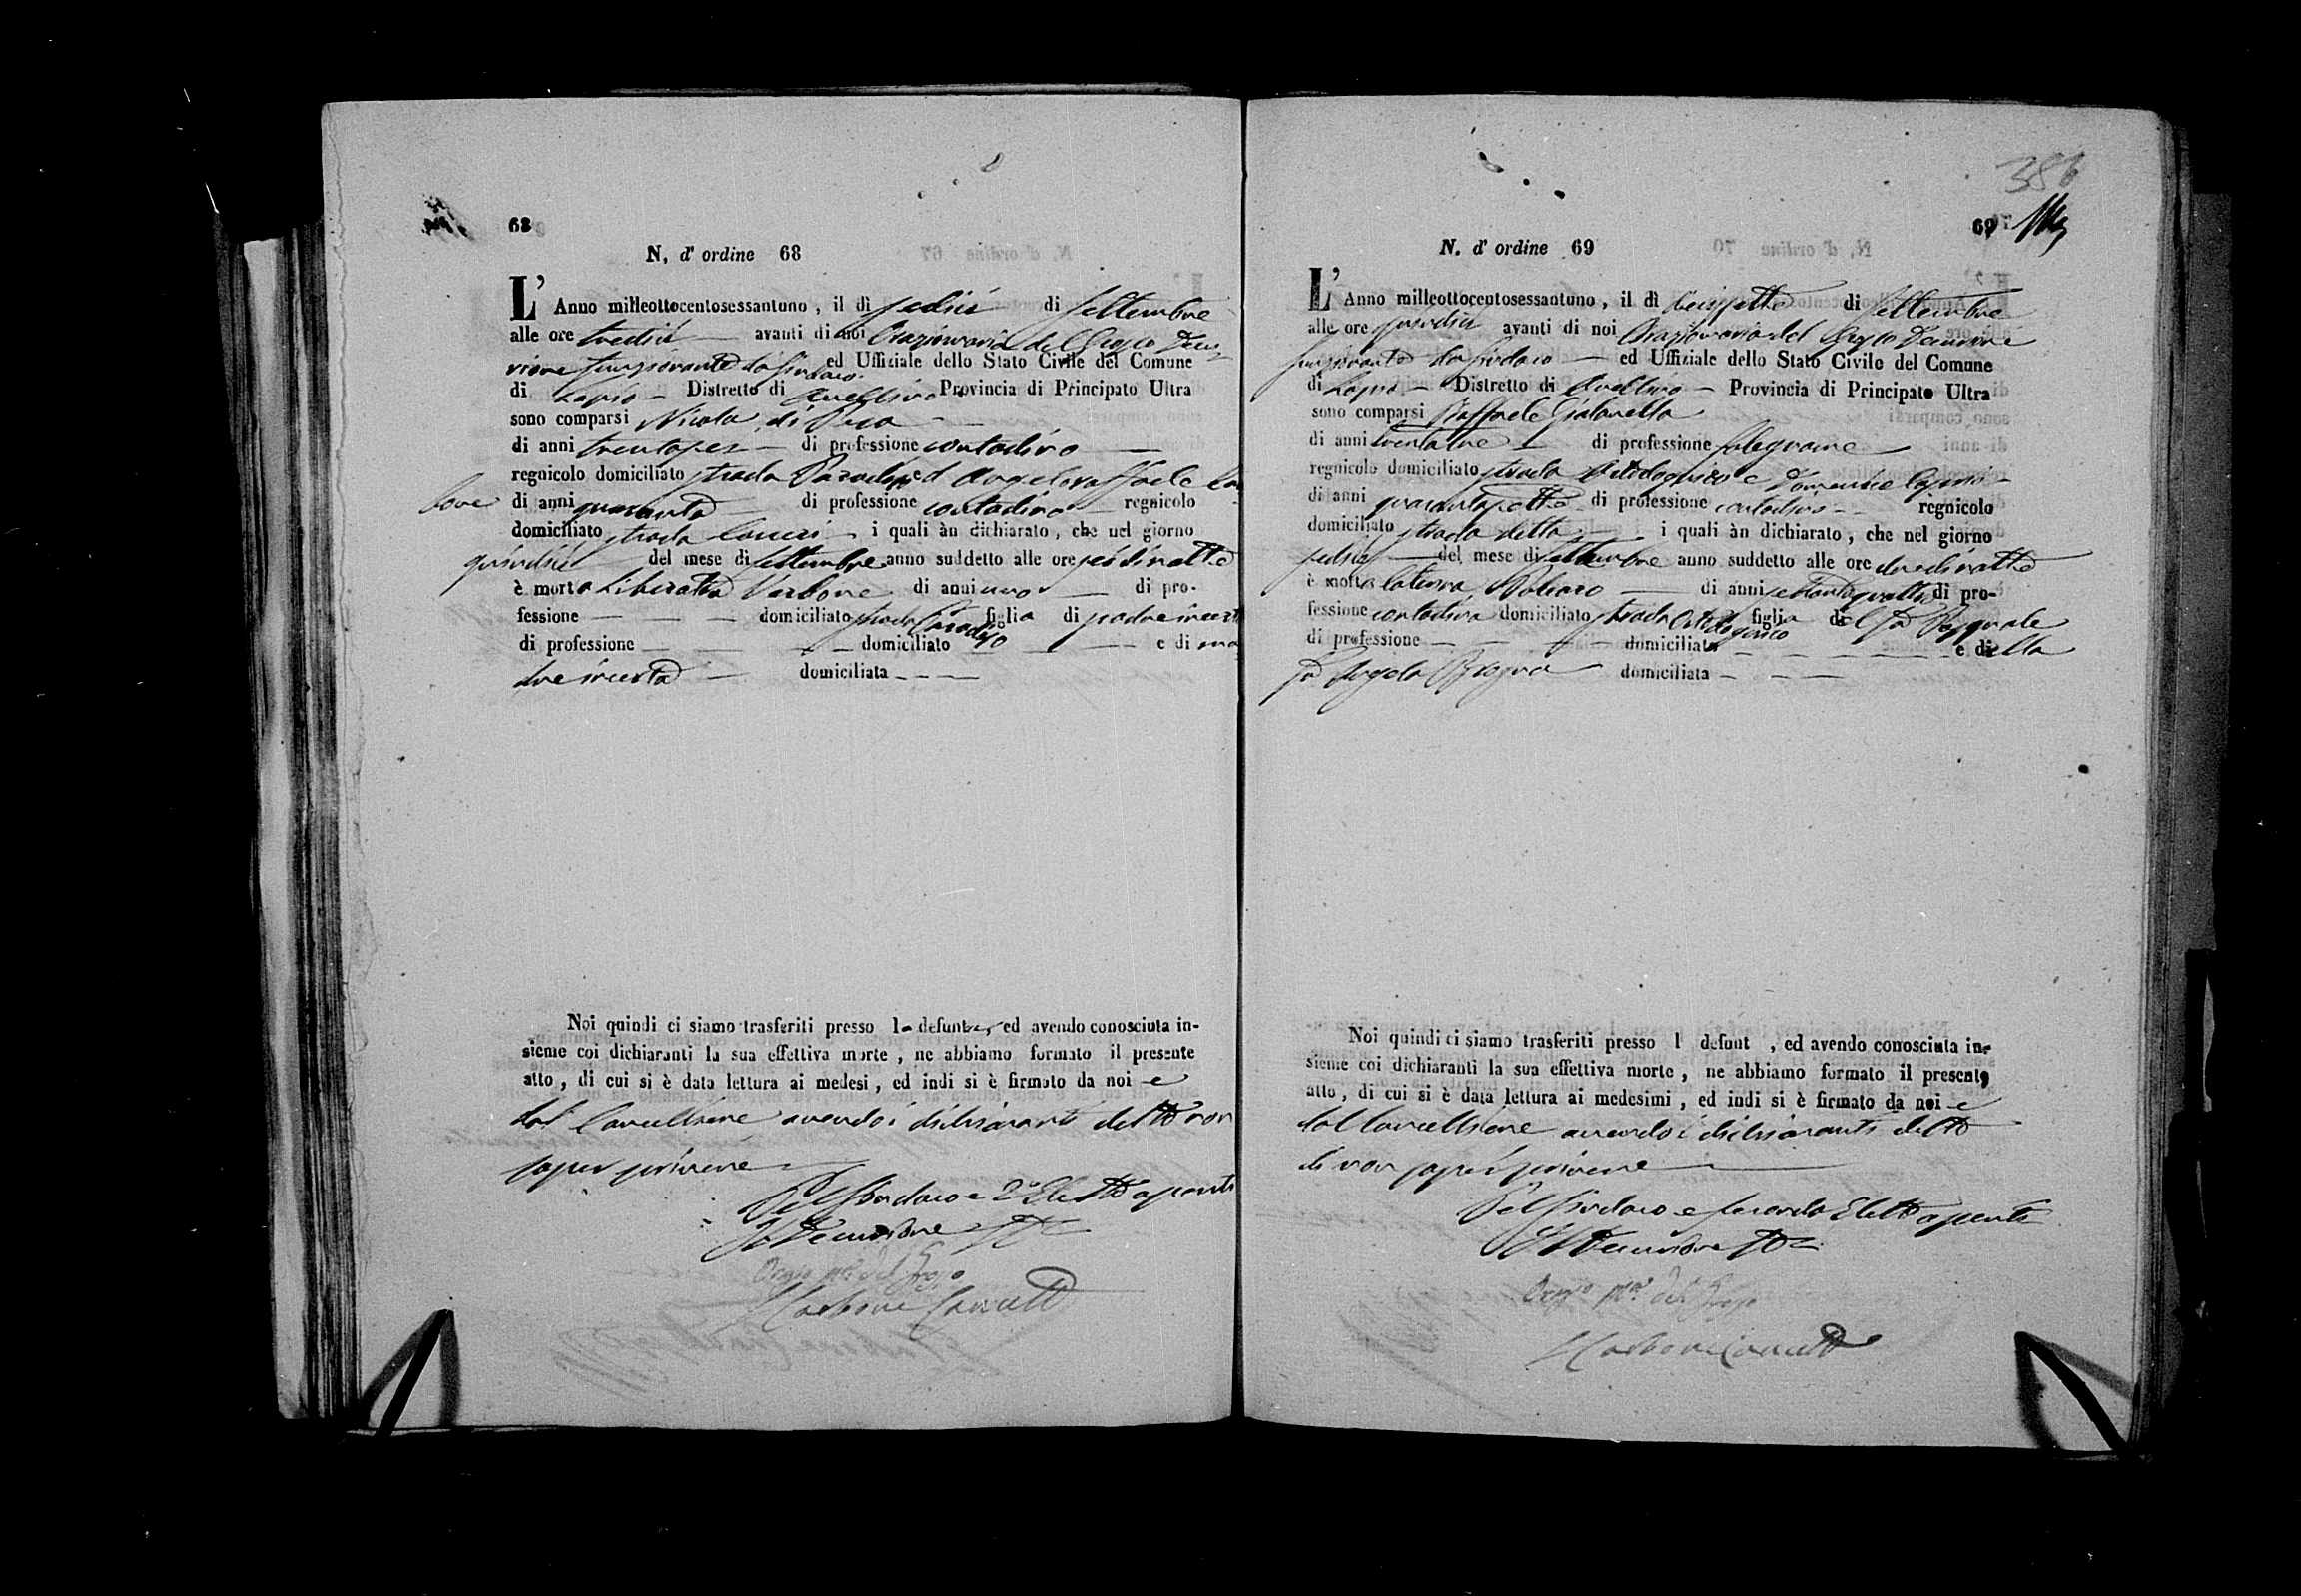 68
N. d' ordine 68
L' Anno milleottocentosessantuno, il dì sedici di Settembre
alle ore tredici avanti di noi Oraziomaria del Grosso Decu-
rione funzionante da Sindaco ed Uffiziale dello Stato Civile del Comune
di Lapio Distretto di Avellino Provincia di Principato Ultra
sono comparsi Nicola di
di anni trentasei di professione contadino
regnicolo domiciliato strada Paradiso ed Angeloraffaele Car
bone di anni quaranta di professione contadino regnicolo
domiciliato strada i quali àn dichiarato, che nel giorno
quindici del mese di Settembre anno suddetto alle ore sei di notte
è morta Liberata Verbone di anni uno di pro-
fessione domiciliato strada Paradiso figlia di padre incerto
di professione domiciliato e di ma
dre incerta domiciliata
Noi quindi ci siamo trasferiti presso la defunta, ed avendo conosciuta in-
sieme coi dichiaranti la sua effettiva morte, ne abbiamo formato il presente
atto, di cui si è data lettura ai medesi, ed indi si è firmato da noi e
dal Cancelliere avendo i dichiaranti detto non
saper scrivere
Pel Sindaco e 2° Eletto assenti
Il Decurione
Orazio Ma del Grosso
Carbone Cancell
386
69
N. d' ordine 69
L' Anno milleottocentosessantuno, il dì diciassette di Settembre
alle ore quindici avanti di noi Oraziomaria del Grosso Decurione
funzionante da Sindaco ed Uffiziale dello Stato Civile del Comune
di Lapio Distretto di Avellino Provincia di Principato Ultra
sono comparsi Raffaele
di anni trentatre di professione falegname
regnicolo domiciliato strada e Domenico
di anni quarantasette di professione contadino regnicolo
domiciliato strada detta i quali àn dichiarato, che nel giorno
sedici del mese di Settembre anno suddetto alle ore due di notte
è morta Caterina di anni settantaquattro di pro-
fessione contadina domiciliato strada figlia del fu Pasquale
di professione domiciliato e della
fu Angela domiciliata
Noi quindi ci siamo trasferiti presso l defunt , ed avendo conosciuta in-
sieme coi dichiaranti la sua effettiva morte, ne abbiamo formato il presente
atto, di cui si è data lettura ai medesimi, ed indi si è firmato da noi e
dal Cancelliere avendo i dichiaranti detto
di non saper scrivere
Pel Sindaco e secondo Eletto assenti
Il Decurione
Orazio Ma del Grosso
Carbone Cancell